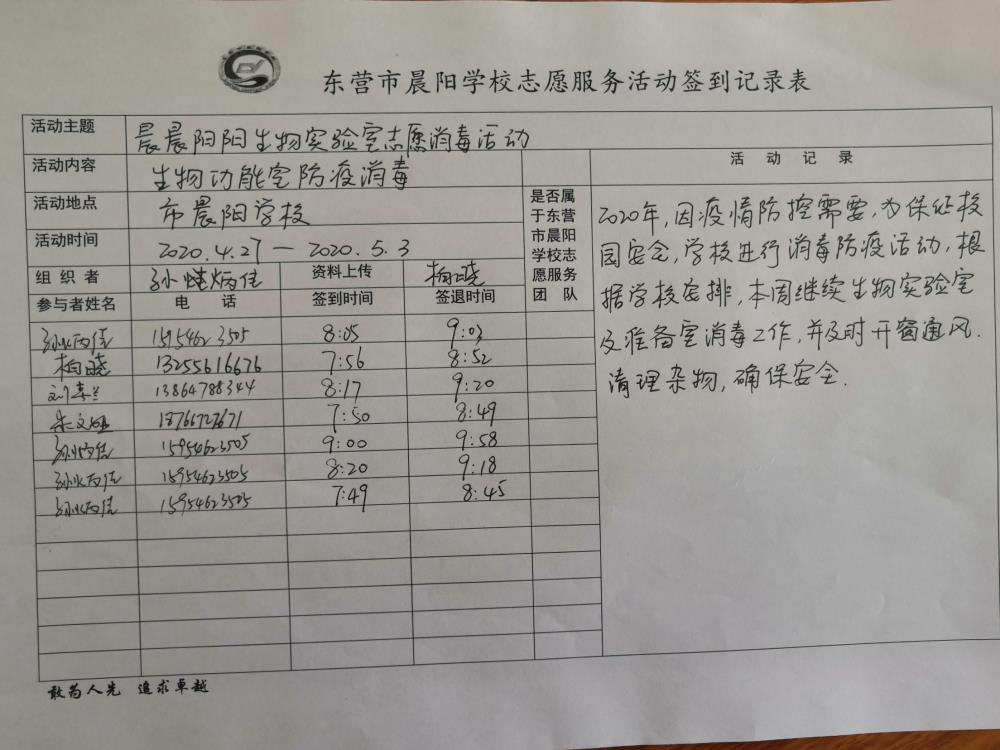 东营市晨阳学校志愿服务活动签到记录表
活动主题 晨晨阳阳生物实验室志愿消毒活动
活动内容 生物功能室防疫消毒
活动地点 市晨阳学校
活动时间 2020.4.27 — 2020.5.3
组织者 孙 炳佳 资料上传 柏晓
参与者姓名 电话 签到时间 签退时间
是否属
于东营
市晨阳
学校志
愿服务
团队
孙炳佳 15954623505 8:05 9:03
柏晓 13255616676 7:56 8:52
刘 兰 13864788344 8:17 9:20
朱文 18766727671 7:50 8:49
孙炳佳 15954623505 9:00 9:58
孙炳佳 15954623505 8:20 9:18
孙炳佳 15954623505 7:49 8:45
活动记录
2020年,因疫情防控需要,为保证校
园安全,学校进行消毒防疫活动,根
据学校安排,本周继续生物实验室
及准备室消毒工作,并及时开窗通风.
清理杂物,确保安全.
敢为人先 追求卓越